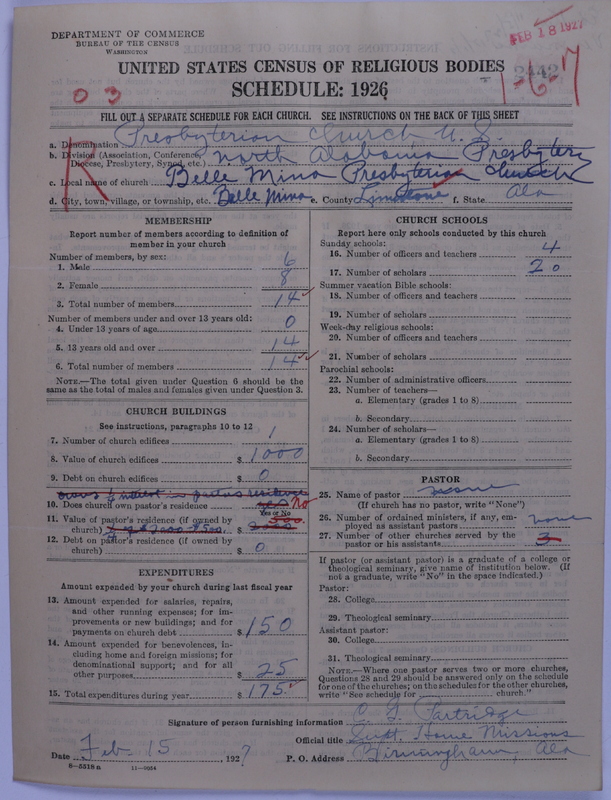 DEPARTMENT OF COMMERCE
BUREAU OF THE CENSUS
WASHINGTON
FEB 18 1927
UNITED STATES CENSUS OF RELIGIOUS BODIES
SCHEDULE: 1926
2442
1-6-7
0 3
R
FILL OUT A SEPARATE SCHEDULE FOR EACH CHURCH. SEE INSTRUCTIONS ON THE BACK OF THIS SHEET
a. Denomination Presbyterian Church U.S.
b. Division (Association, Conference, Diocese, Presbytery, Synod, etc.) North Alabama Presbytery
c. Local name of church Belle Mina Presbyterian Church
d. City, town, village, or township, etc. Belle Mina e. County Limestone f. State Ala
MEMBERSHIP
Report number of members according to definition of
member in your church
Number of members, by sex:
1. Male 6
2. Female 8
3. Total number of members 14
Number of members under and over 13 years old:
4. Under 13 years of age 0
5. 13 years old and over 14
6. Total number of members 14
NOTE.—The total given under Question 6 should be the
same as the total of males and females given under Question 3.
CHURCH BUILDINGS
See instructions, paragraphs 10 to 12
7. Number of church edifices 1
8. Value of church edifices $ 1000
9. Debt on church edifices $ 0
owns 1/4 interest in pastor's residence
10. Does church own pastor's residence No
Yes or No
11. Value of pastor's residence (if owned by
church) $ 500
12. Debt on pastor's residence (if owned by
church) $ 0
EXPENDITURES
Amount expended by your church during last fiscal year
13. Amount expended for salaries, repairs,
and other running expenses; for im-
provements or new buildings; and for
payments on church debt $ 150
14. Amount expended for benevolences, in-
cluding home and foreign missions; for
denominational support; and for all
other purposes $ 25
15. Total expenditures during year $ 175
CHURCH SCHOOLS
Report here only schools conducted by this church
Sunday schools:
16. Number of officers and teachers 4
17. Number of scholars 20
Summer vacation Bible schools:
18. Number of officers and teachers
19. Number of scholars
Week-day religious schools:
20. Number of officers and teachers
21. Number of scholars
Parochial schools:
22. Number of administrative officers
23. Number of teachers—
a. Elementary (grades 1 to 8)
b. Secondary
24. Number of scholars—
a. Elementary (grades 1 to 8)
b. Secondary
PASTOR
25. Name of pastor none
(If church has no pastor, write "None")
26. Number of ordained ministers, if any, em-
ployed as assistant pastors none
27. Number of other churches served by the
pastor or his assistants 3
If pastor (or assistant pastor) is a graduate of a college or
theological seminary, give name of institution below. (If
not a graduate, write "No" in the space indicated.)
Pastor:
28. College
29. Theological seminary
Assistant pastor:
30. College
31. Theological seminary
NOTE.—Where one pastor serves two or more churches,
Questions 28 and 29 should be answered only on the schedule
for one of the churches; on the schedules for the other churches,
write "See schedule for church."
Signature of person furnishing information C L Partridge
Official title Supt. Home Missions
Date Feb 15 1927 P. O. Address Birmingham, Ala
8-5518 a 11-9064